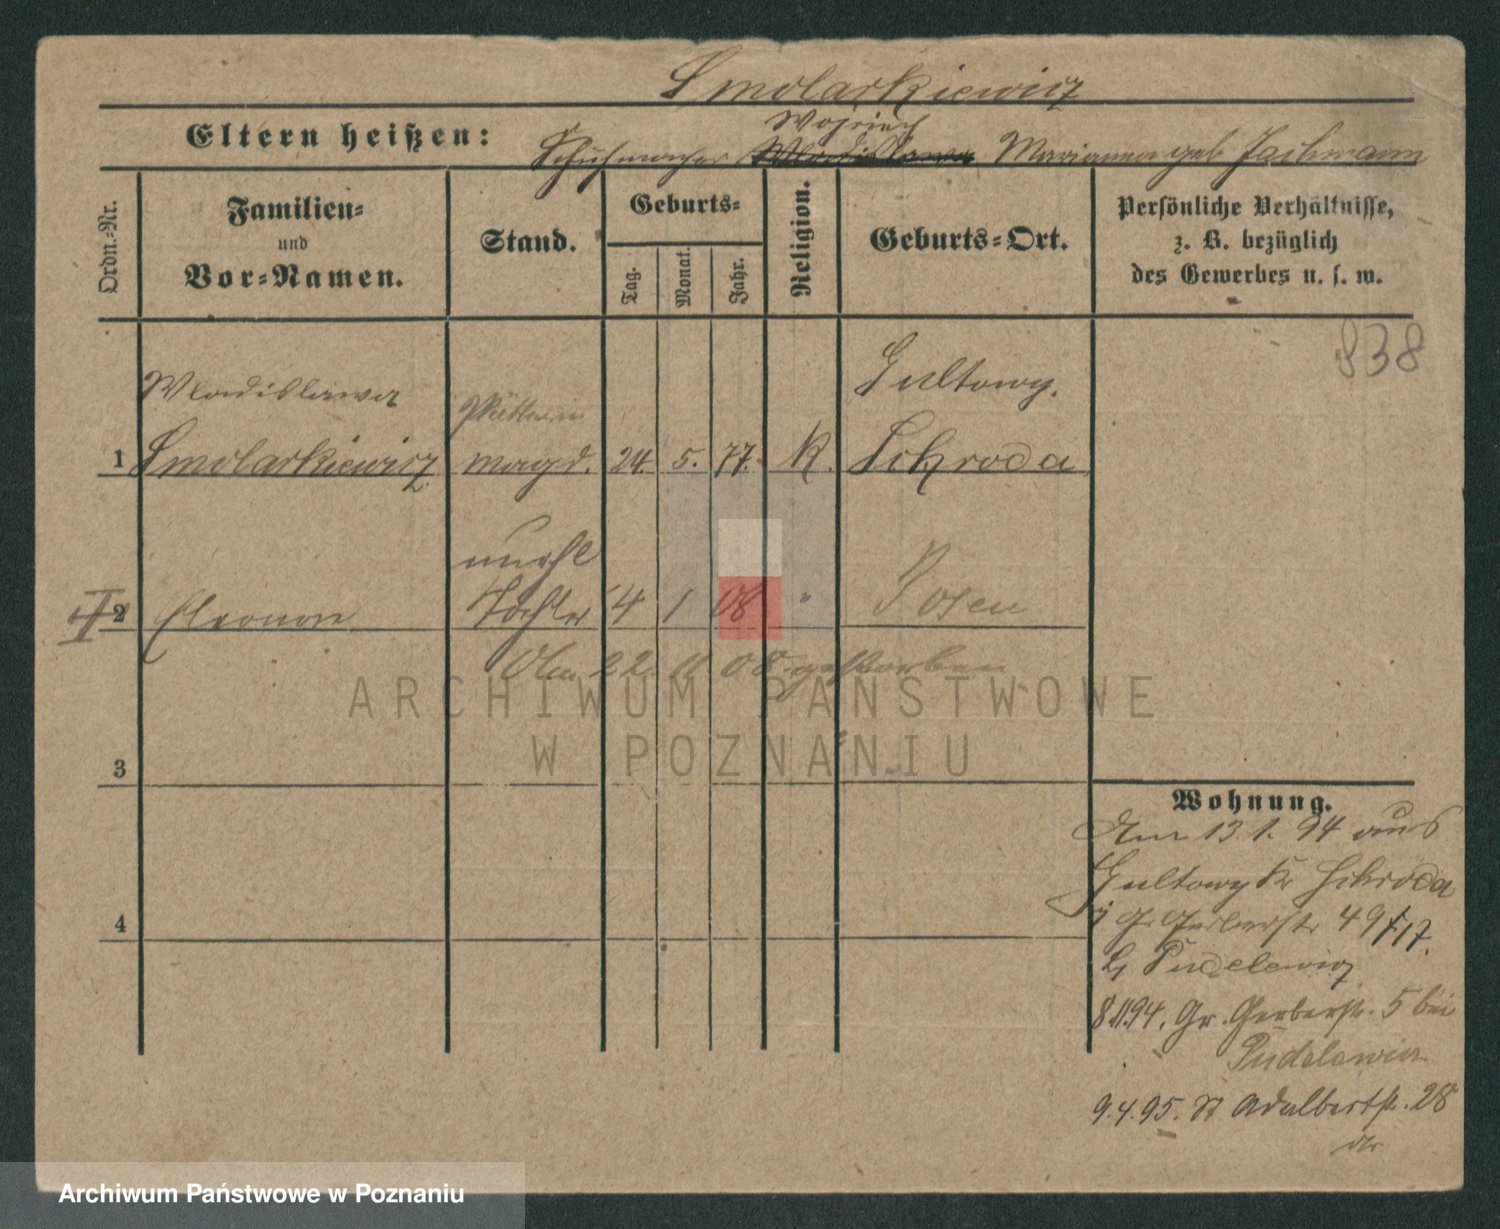 Smolarkiewicz
Eltern heißen:
Wojciech
Schuhmacher Wladislawa Marianna geb Jachmann
Ordn.-Nr.
Familien-
und
Vor-Namen.
Stand.
Geburts-
Tag.
Monat.
Jahr.
Religion.
Geburts-Ort.
Persönliche Verhältnisse,
z. B. bezüglich
des Gewerbes u. s. w.
838
Wladislawa
Gultowy.
1 Smolarkiewicz magd. 24. 5. 77. K. Schroda
unehl
II 2 Eleonore Tochter 4 1 08 " Posen
22 11 08 gestorben
3
4
Wohnung.
Am 13. 1. 94 aus
Gultowy Kr Schroda
Gr Gerberstr 49
b Pudelewicz
8.11.94. Gr. Gerberstr. 5 bei
Pudelewicz
9.4.95. St Adalbertstr. 28
ARCHIWUM PAŃSTWOWE
W POZNANIU
Archiwum Państwowe w Poznaniu